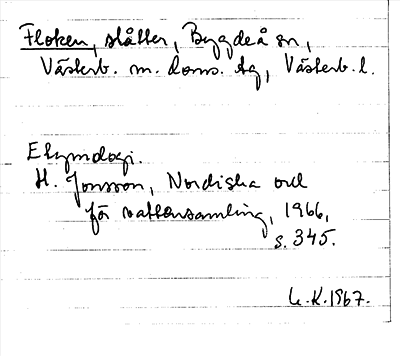 Floken, slåtter, Bygdeå sn,
Västerb. m. doms. tg, Västerb. l.
Etymologi.
H. Jonsson, Nordiska ord
för vattensamling, 1966,
s. 345.
L.K. 1967.